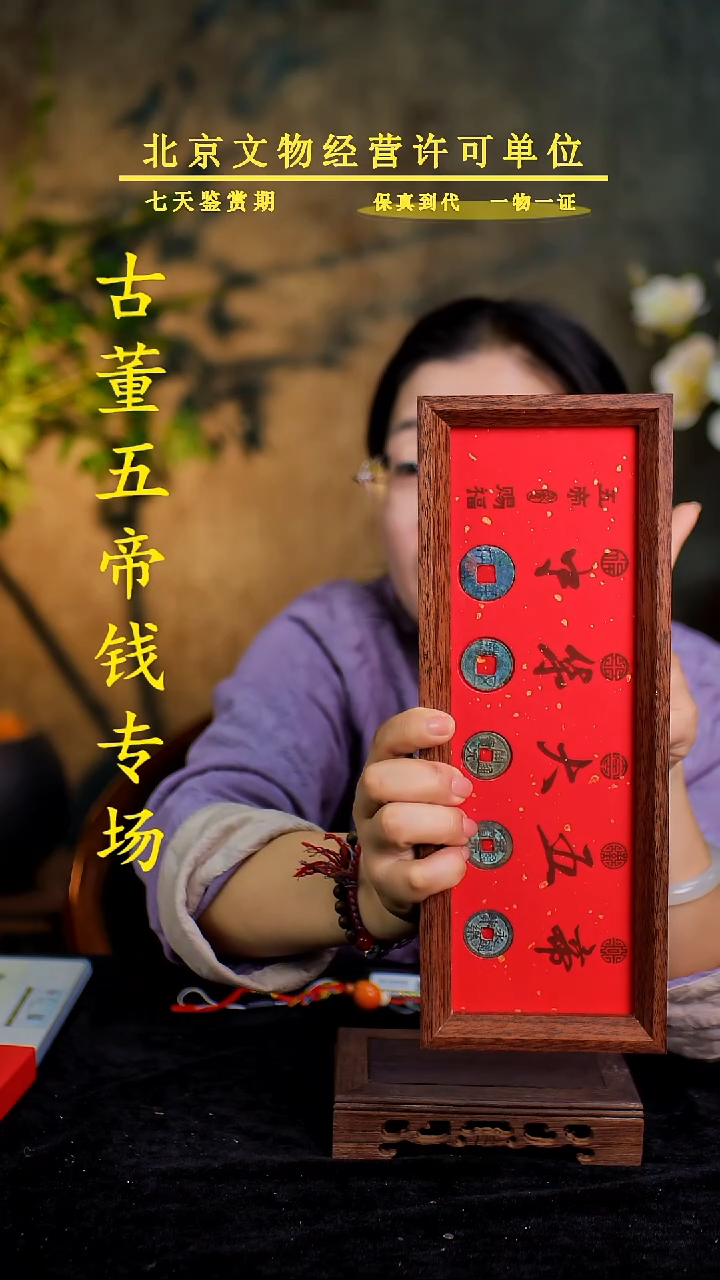 北京文物经营许可单位
七天鉴赏期 保真到代 一物一证
古董五帝钱专场
五帝赐福
中华大五帝